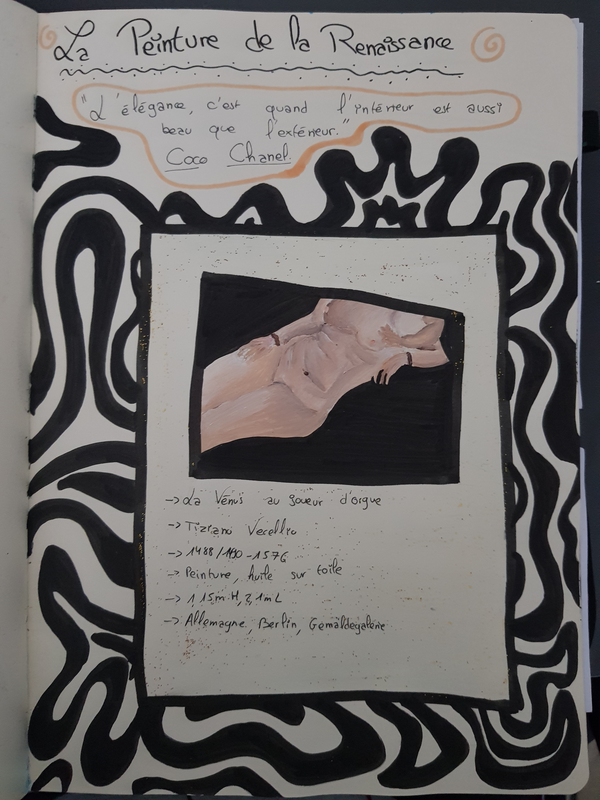 La Peinture de la Renaissance
"L'élégance, c'est quand l'intérieur est aussi
beau que l'extérieur."
Coco Chanel
-> La Vénus au joueur d'orgue
-> Tiziano Vecellio
-> 1488/190-1576
-> Peinture, huile sur toile
-> 1,15m H, 2,1m L
-> Allemagne, Berlin, Gemäldegalerie